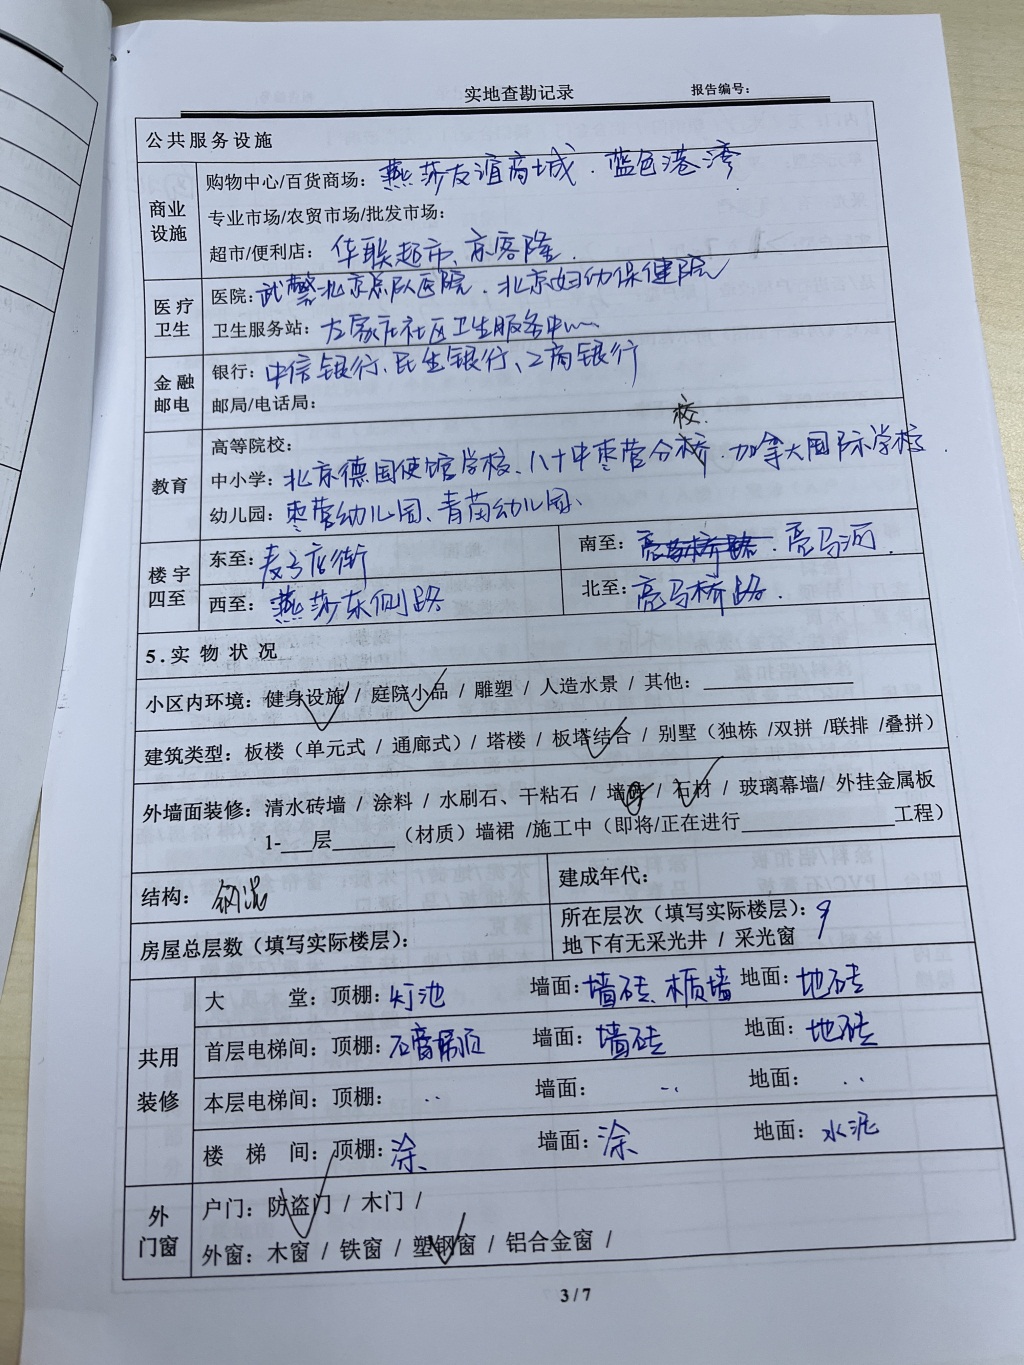 实地查勘记录 报告编号：
公共服务设施
商业设施
购物中心/百货商场：燕莎友谊商城．蓝色港湾
专业市场/农贸市场/批发市场：
超市/便利店：华联超市、京客隆．
医疗卫生
医院：武警北京总队医院．北京妇幼保健院
卫生服务站：左家庄社区卫生服务中心
金融邮电
银行：中信银行、民生银行、工商银行
邮局/电话局：
教育
高等院校：
校．
中小学：北京德国使馆学校、八十中枣营分校．加拿大国际学校．
幼儿园：枣营幼儿园、青苗幼儿园、
楼宇四至
东至：麦子店街 南至：亮马桥路．亮马河．
西至：燕莎东侧路 北至：亮马桥路．
5.实物状况
小区内环境：健身设施 / 庭院小品 / 雕塑 / 人造水景 / 其他：
建筑类型：板楼（单元式 / 通廊式）/ 塔楼 / 板塔结合 / 别墅（独栋 /双拼 /联排 /叠拼）
外墙面装修：清水砖墙 / 涂料 / 水刷石、干粘石 / 墙砖 / 石材 / 玻璃幕墙/ 外挂金属板
1-___层______（材质）墙裙 /施工中（即将/正在进行______________工程）
结构：钢混 建成年代：
房屋总层数（填写实际楼层）： 所在层次（填写实际楼层）：9
地下有无采光井 / 采光窗
共用装修
大堂：顶棚：灯池 墙面：墙砖、木质墙 地面：地砖
首层电梯间：顶棚：石膏吊顶 墙面：墙砖 地面：地砖
本层电梯间：顶棚：‥ 墙面：‥ 地面：‥
楼梯间：顶棚：涂 墙面：涂 地面：水泥
外门窗
户门：防盗门 / 木门 /
外窗：木窗 / 铁窗 / 塑钢窗 / 铝合金窗 /
3 / 7